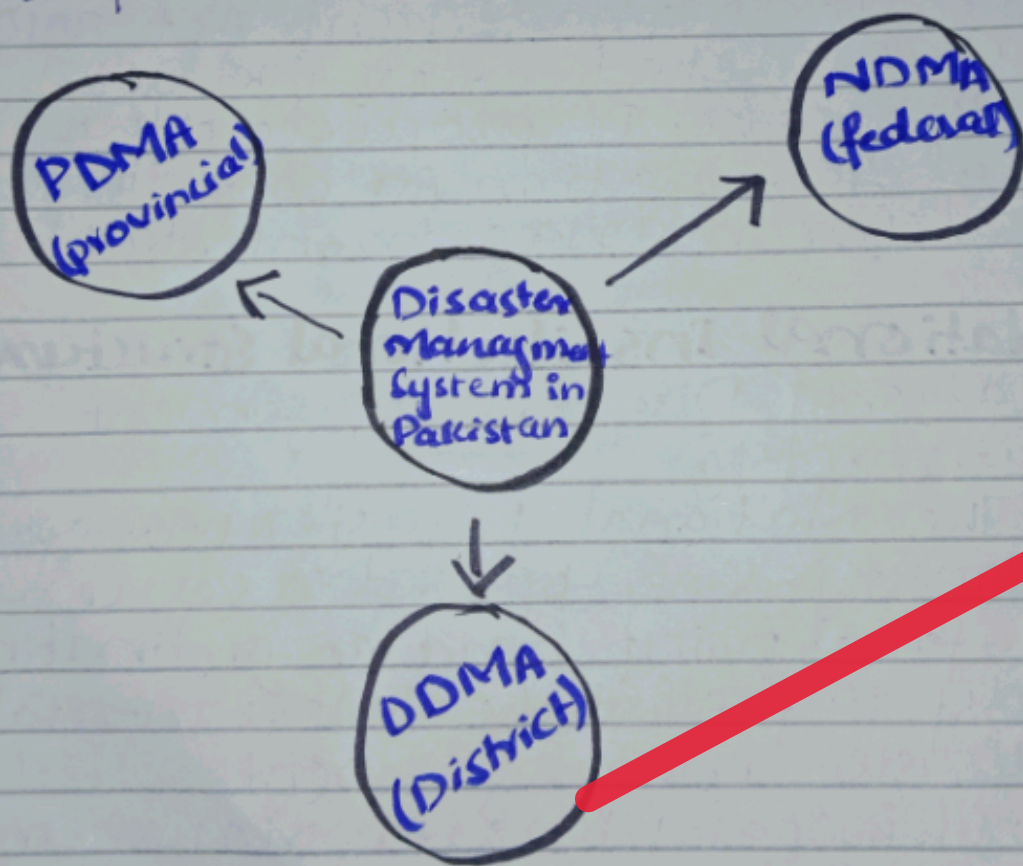 PDMA
(provincial)
NDMA
(federal)
Disaster
Managment
System in
Pakistan
DDMA
(District)